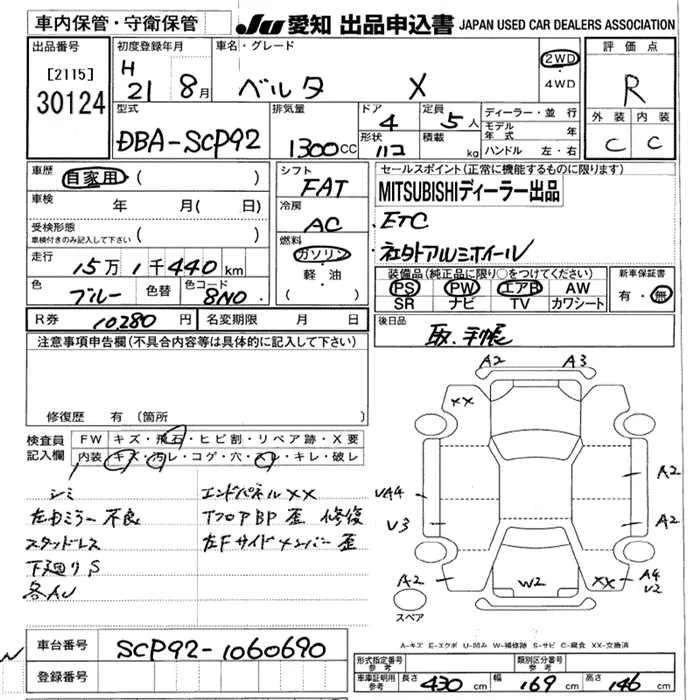 車内保管・守衛保管 JU 愛知 出品申込書 JAPAN USED CAR DEALERS ASSOCIATION
出品番号 [2115] 30124
初度登録年月 H 21 8月
車名・グレード ベルタ X 2WD ・4WD
評価点 R
外装 内装
C C
型式 DBA-SCP92
排気量 1300CC
ドア 4 形状 ハコ
定員 5人 積載 kg
ディーラー・並行
モデル年式 年
ハンドル 左・右
車歴 自家用 ( )
車検 年 月( 日)
受検形態 車検付きのみ記入して下さい ( )
走行 15万1千440km
色 ブルー 色替 色コード 8N0
シフト FAT
冷房 AC
燃料 ガソリン・軽・油
セールスポイント(正常に機能するものに限ります)
MITSUBISHIディーラー出品
・ETC
・社外アルミホイール
装備品(純正品に限り○をつけてください)
PS PW エアB AW
SR ナビ TV カワシート
新車保証書 有・無
R券 10,280円 名変期限 月 日
後日品 取、手帳
注意事項申告欄(不具合内容等は具体的に記入して下さい)
修復歴 有 (箇所
検査員記入欄
FW キズ・飛石・ヒビ割・リペア跡・X要
内装 キズ・汚レ・コゲ・穴・スレ・キレ・破レ
シミ
左右ミラー不良
スタッドレス
下廻りS
各AU
エンドパネルXX
TフロアBP歪 修復
左Fサイドメンバー歪
A2 A3
XX
A2
VA4
V3 A2
A2 W2 XX A4 V2
スペア
A-キズ E-エクボ U-凹み W-補修跡 S-サビ C-腐食 XX-交換済
車台番号 SCP92-1060690
登録番号
形式指定番号 参考 類別区分番号 参考
車庫証明用 参考 長さ 430cm 幅 169cm 高さ 146cm